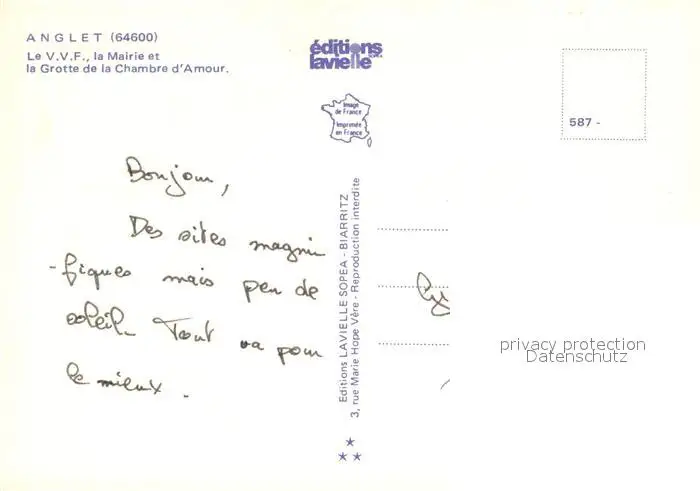 ANGLET (64600)
Le V.V.F., la Mairie et
la Grotte de la Chambre d'Amour.
éditions
lavielle
SOPEA
Image
de France
Imprimée
en France
587 -
Bonjour,
Des sites magni
-fiques mais peu de
soleil. Tout va pour
le mieux.
Editions LAVIELLE SOPEA - BIARRITZ
3, rue Marie Hope Vère - Reproduction interdite
privacy protection
Datenschutz